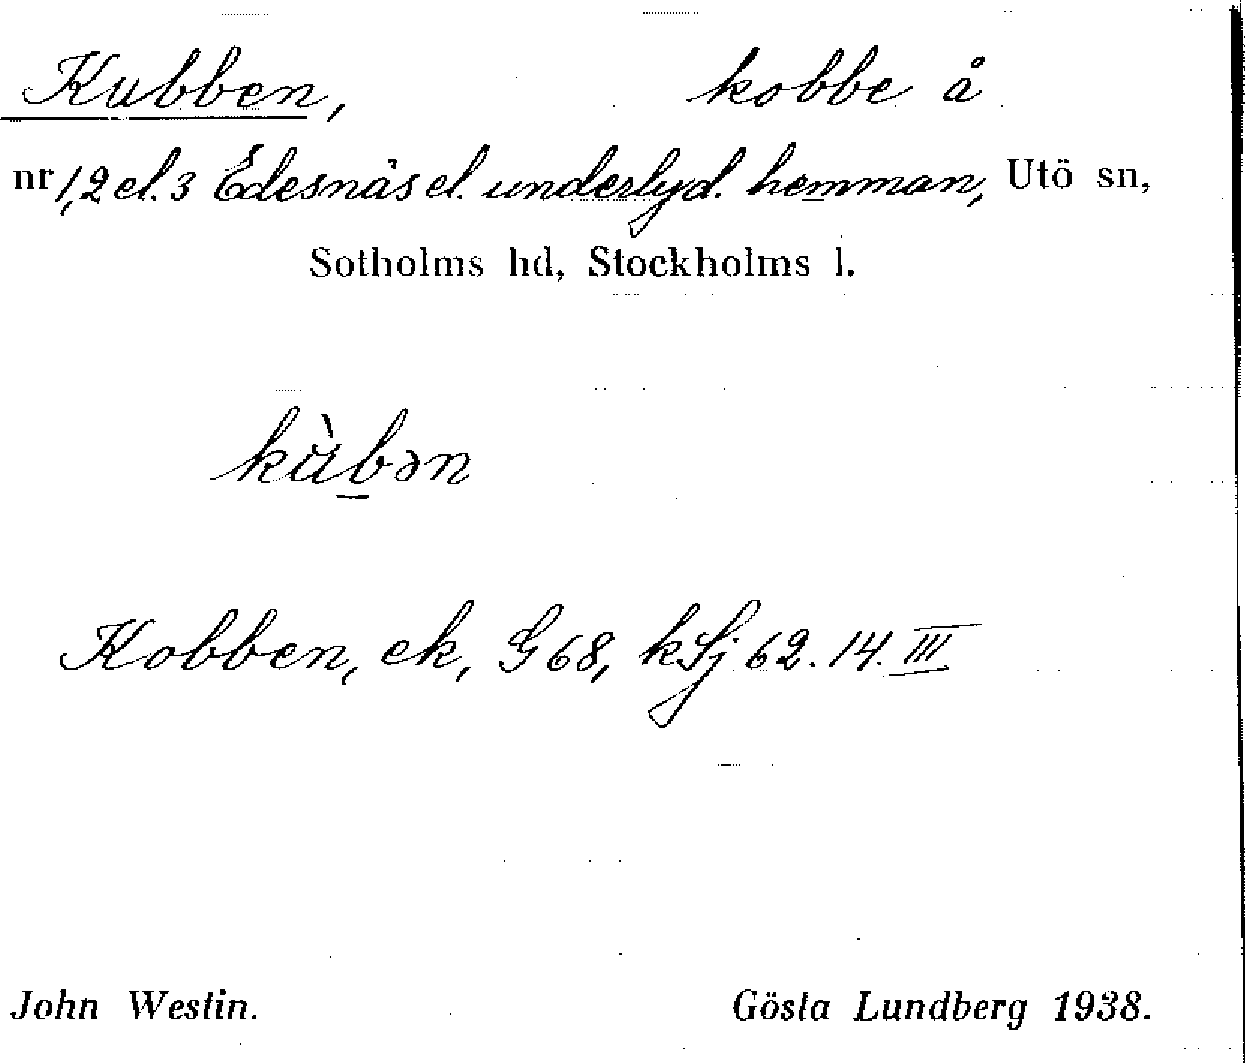 Kubben, kobbe å
nr 1,2 el. 3 Edesnäs el. underlyd. hemman, Utö sn,
Sotholms hd, Stockholms l.
kùbən
Kobben, ek, G 68, kSj 62.14.III
John Westin. Gösta Lundberg 1938.